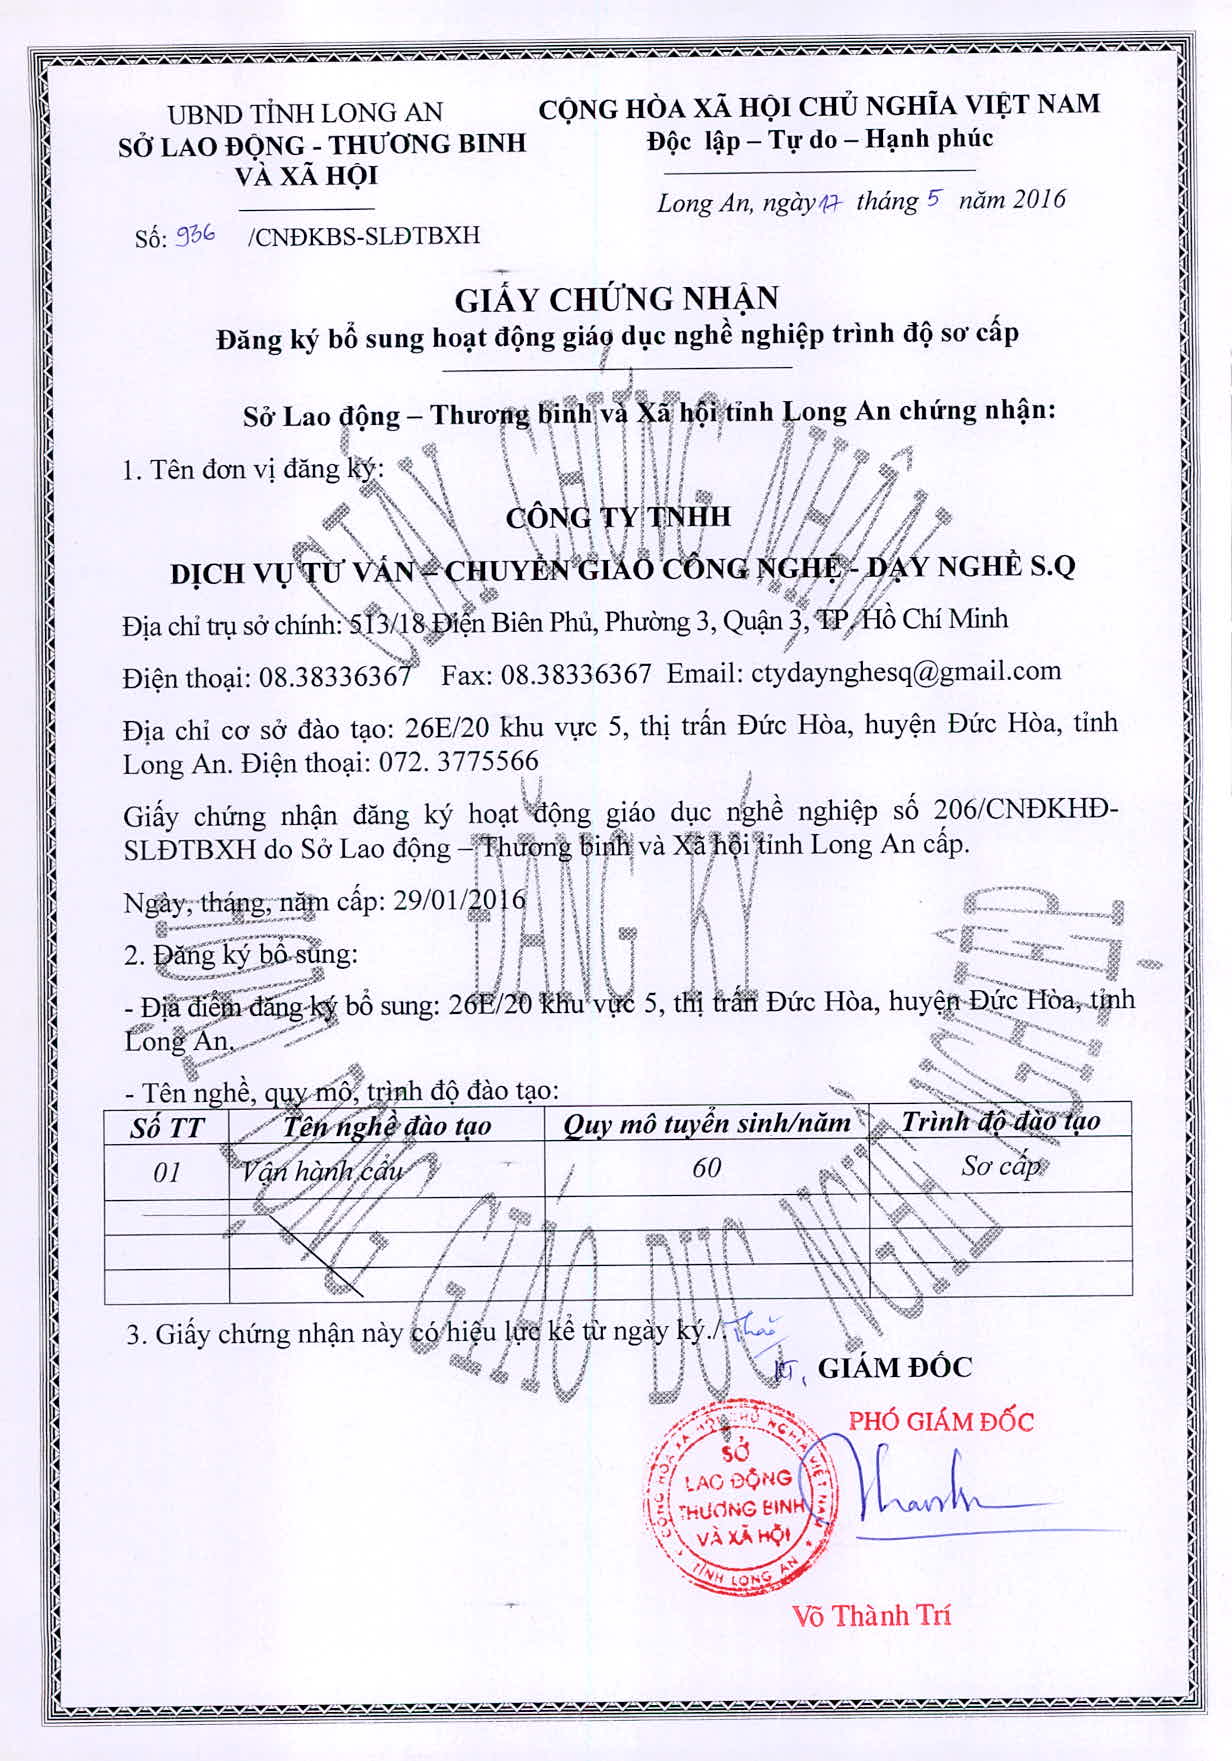 UBND TỈNH LONG AN
SỞ LAO ĐỘNG - THƯƠNG BINH
VÀ XÃ HỘI
Số: 936 /CNĐKBS-SLĐTBXH
CỘNG HÒA XÃ HỘI CHỦ NGHĨA VIỆT NAM
Độc lập – Tự do – Hạnh phúc
Long An, ngày 17 tháng 5 năm 2016
GIẤY CHỨNG NHẬN
Đăng ký bổ sung hoạt động giáo dục nghề nghiệp trình độ sơ cấp
Sở Lao động – Thương binh và Xã hội tỉnh Long An chứng nhận:
1. Tên đơn vị đăng ký:
CÔNG TY TNHH
DỊCH VỤ TƯ VẤN – CHUYỂN GIAO CÔNG NGHỆ - DẠY NGHỀ S.Q
Địa chỉ trụ sở chính: 513/18 Điện Biên Phủ, Phường 3, Quận 3, TP. Hồ Chí Minh
Điện thoại: 08.38336367 Fax: 08.38336367 Email: ctydaynghesq@gmail.com
Địa chỉ cơ sở đào tạo: 26E/20 khu vực 5, thị trấn Đức Hòa, huyện Đức Hòa, tỉnh
Long An. Điện thoại: 072. 3775566
Giấy chứng nhận đăng ký hoạt động giáo dục nghề nghiệp số 206/CNĐKHĐ-
SLĐTBXH do Sở Lao động – Thương binh và Xã hội tỉnh Long An cấp.
Ngày, tháng, năm cấp: 29/01/2016
2. Đăng ký bổ sung:
- Địa điểm đăng ký bổ sung: 26E/20 khu vực 5, thị trấn Đức Hòa, huyện Đức Hòa, tỉnh
Long An.
- Tên nghề, quy mô, trình độ đào tạo:
Số TT Tên nghề đào tạo Quy mô tuyển sinh/năm Trình độ đào tạo
01 Vận hành cẩu 60 Sơ cấp
3. Giấy chứng nhận này có hiệu lực kể từ ngày ký./. Thảo
KT. GIÁM ĐỐC
PHÓ GIÁM ĐỐC
CỘNG HÒA XÃ HỘI CHỦ NGHĨA VIỆT NAM
SỞ
LAO ĐỘNG
THƯƠNG BINH
VÀ XÃ HỘI
TỈNH LONG AN
Võ Thành Trí
GIẤY CHỨNG NHẬN
ĐĂNG KÝ
HOẠT ĐỘNG GIÁO DỤC NGHỀ NGHIỆP